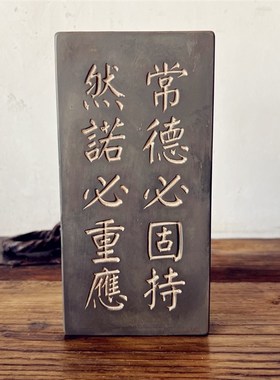 常德必固持
然諾必重應